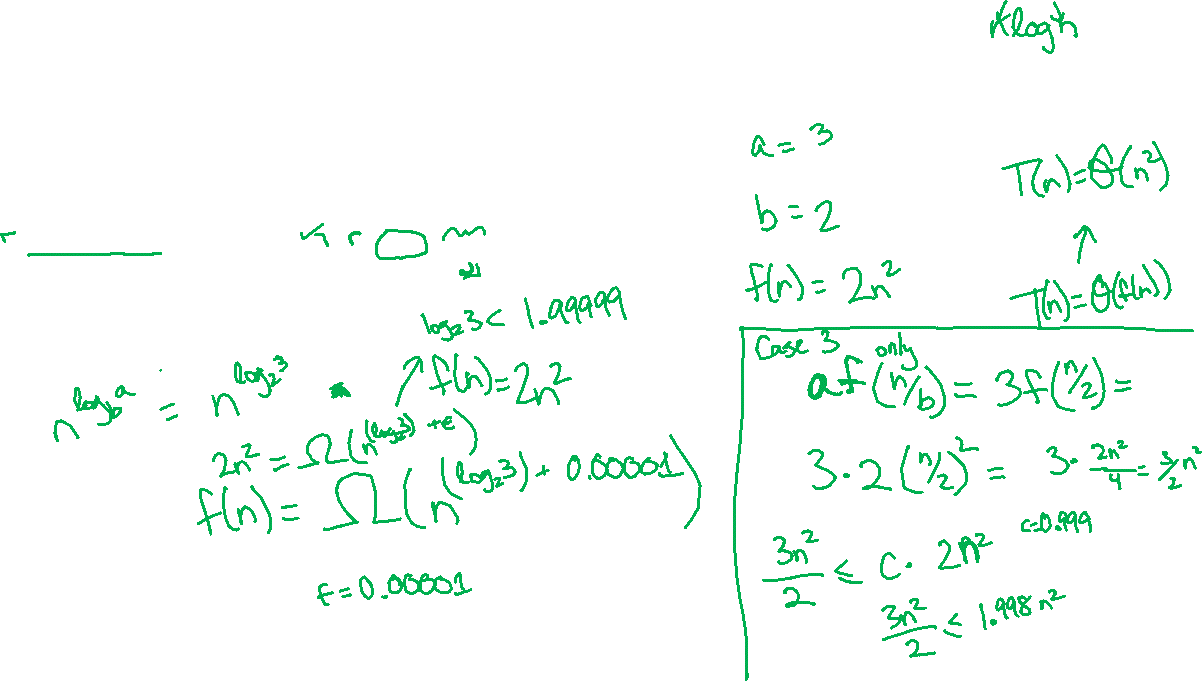 a = 3
b = 2
f(n) = 2n²
T(n) = θ(n²)
↑
T(n) = θ(f(n))
log₂3 < 1.99999
n^(log_b a) = n^(log₂3)
f(n) = 2n²
2n² = Ω(n^((log₂3) + ε))
f(n) = Ω(n^((log₂3) + 0.00001))
ε = 0.00001
Case 3 only
af(n/b) = 3f(n/2) =
3·2(n/2)² = 3·2n²/4 = 3/2 n²
3n²/2 ≤ c·2n² c=0.999
3n²/2 ≤ 1.998n²